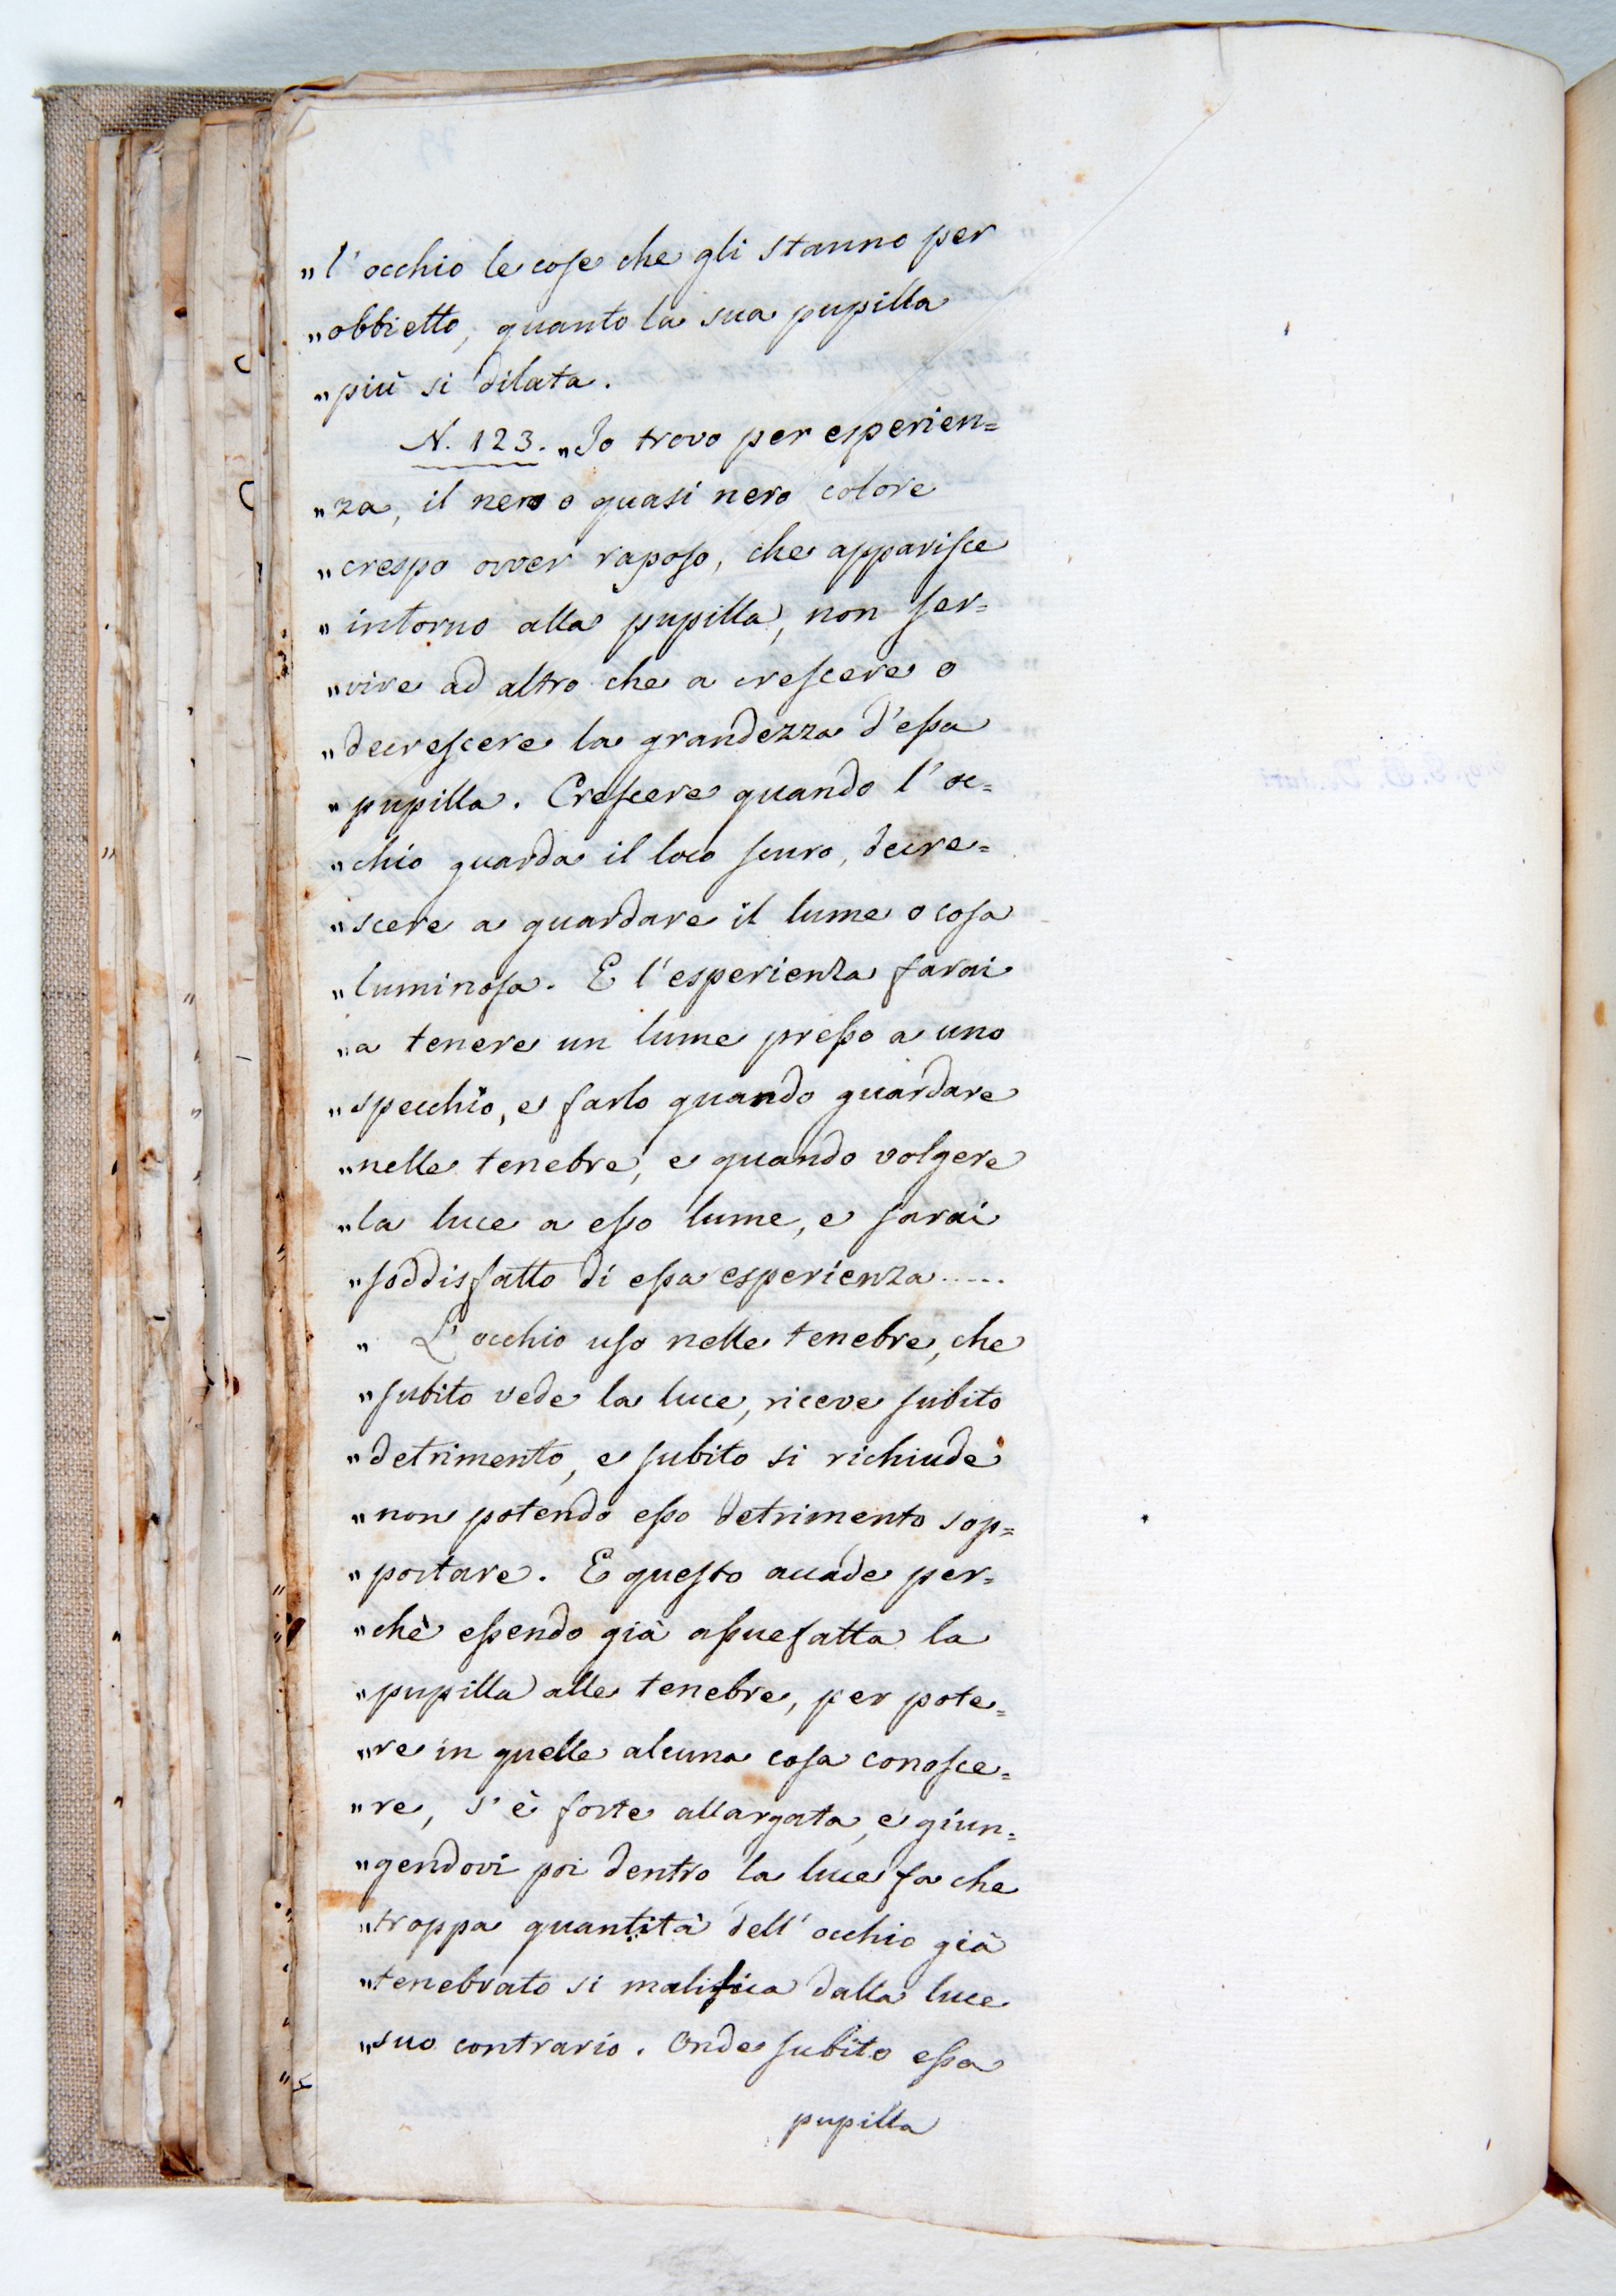 „l'occhio le cose che gli stanno per
„obbietto, quanto la sua pupilla
„più si dilata.
N. 123. „Io trovo per esperien=
„za, il nero o quasi nero colore
„crespo over raposo, che apparisce
„intorno alla pupilla, non ser=
„vire ad altro che a crescere o
„decrescere la grandezza d'essa
„pupilla. Crescere quando l'oc=
„chio guarda il loco scuro, decre=
„scere a guardare il lume o cosa
„luminosa. E l'esperienza farai
„a tenere un lume presso a uno
„specchio, e farlo quando guardare
„nelle tenebre, e quando volgere
„la luce a esso lume, e sarai
„soddisfatto di essa esperienza.....
„ L'occhio uso nelle tenebre, che
„subito vede la luce, riceve subito
„detrimento, e subito si richiude
„non potendo esso detrimento sop=
„portare. E questo accade per=
„chè essendo già assuefatta la
„pupilla alle tenebre, per pote=
„re in quelle alcuna cosa conosce=
„re, s'è forte allargata, e giun=
„gendovi poi dentro la luce fa che
„troppa quantità dell'occhio già
„tenebrato si malifica dalla luce
„suo contrario. Onde subito essa
pupilla